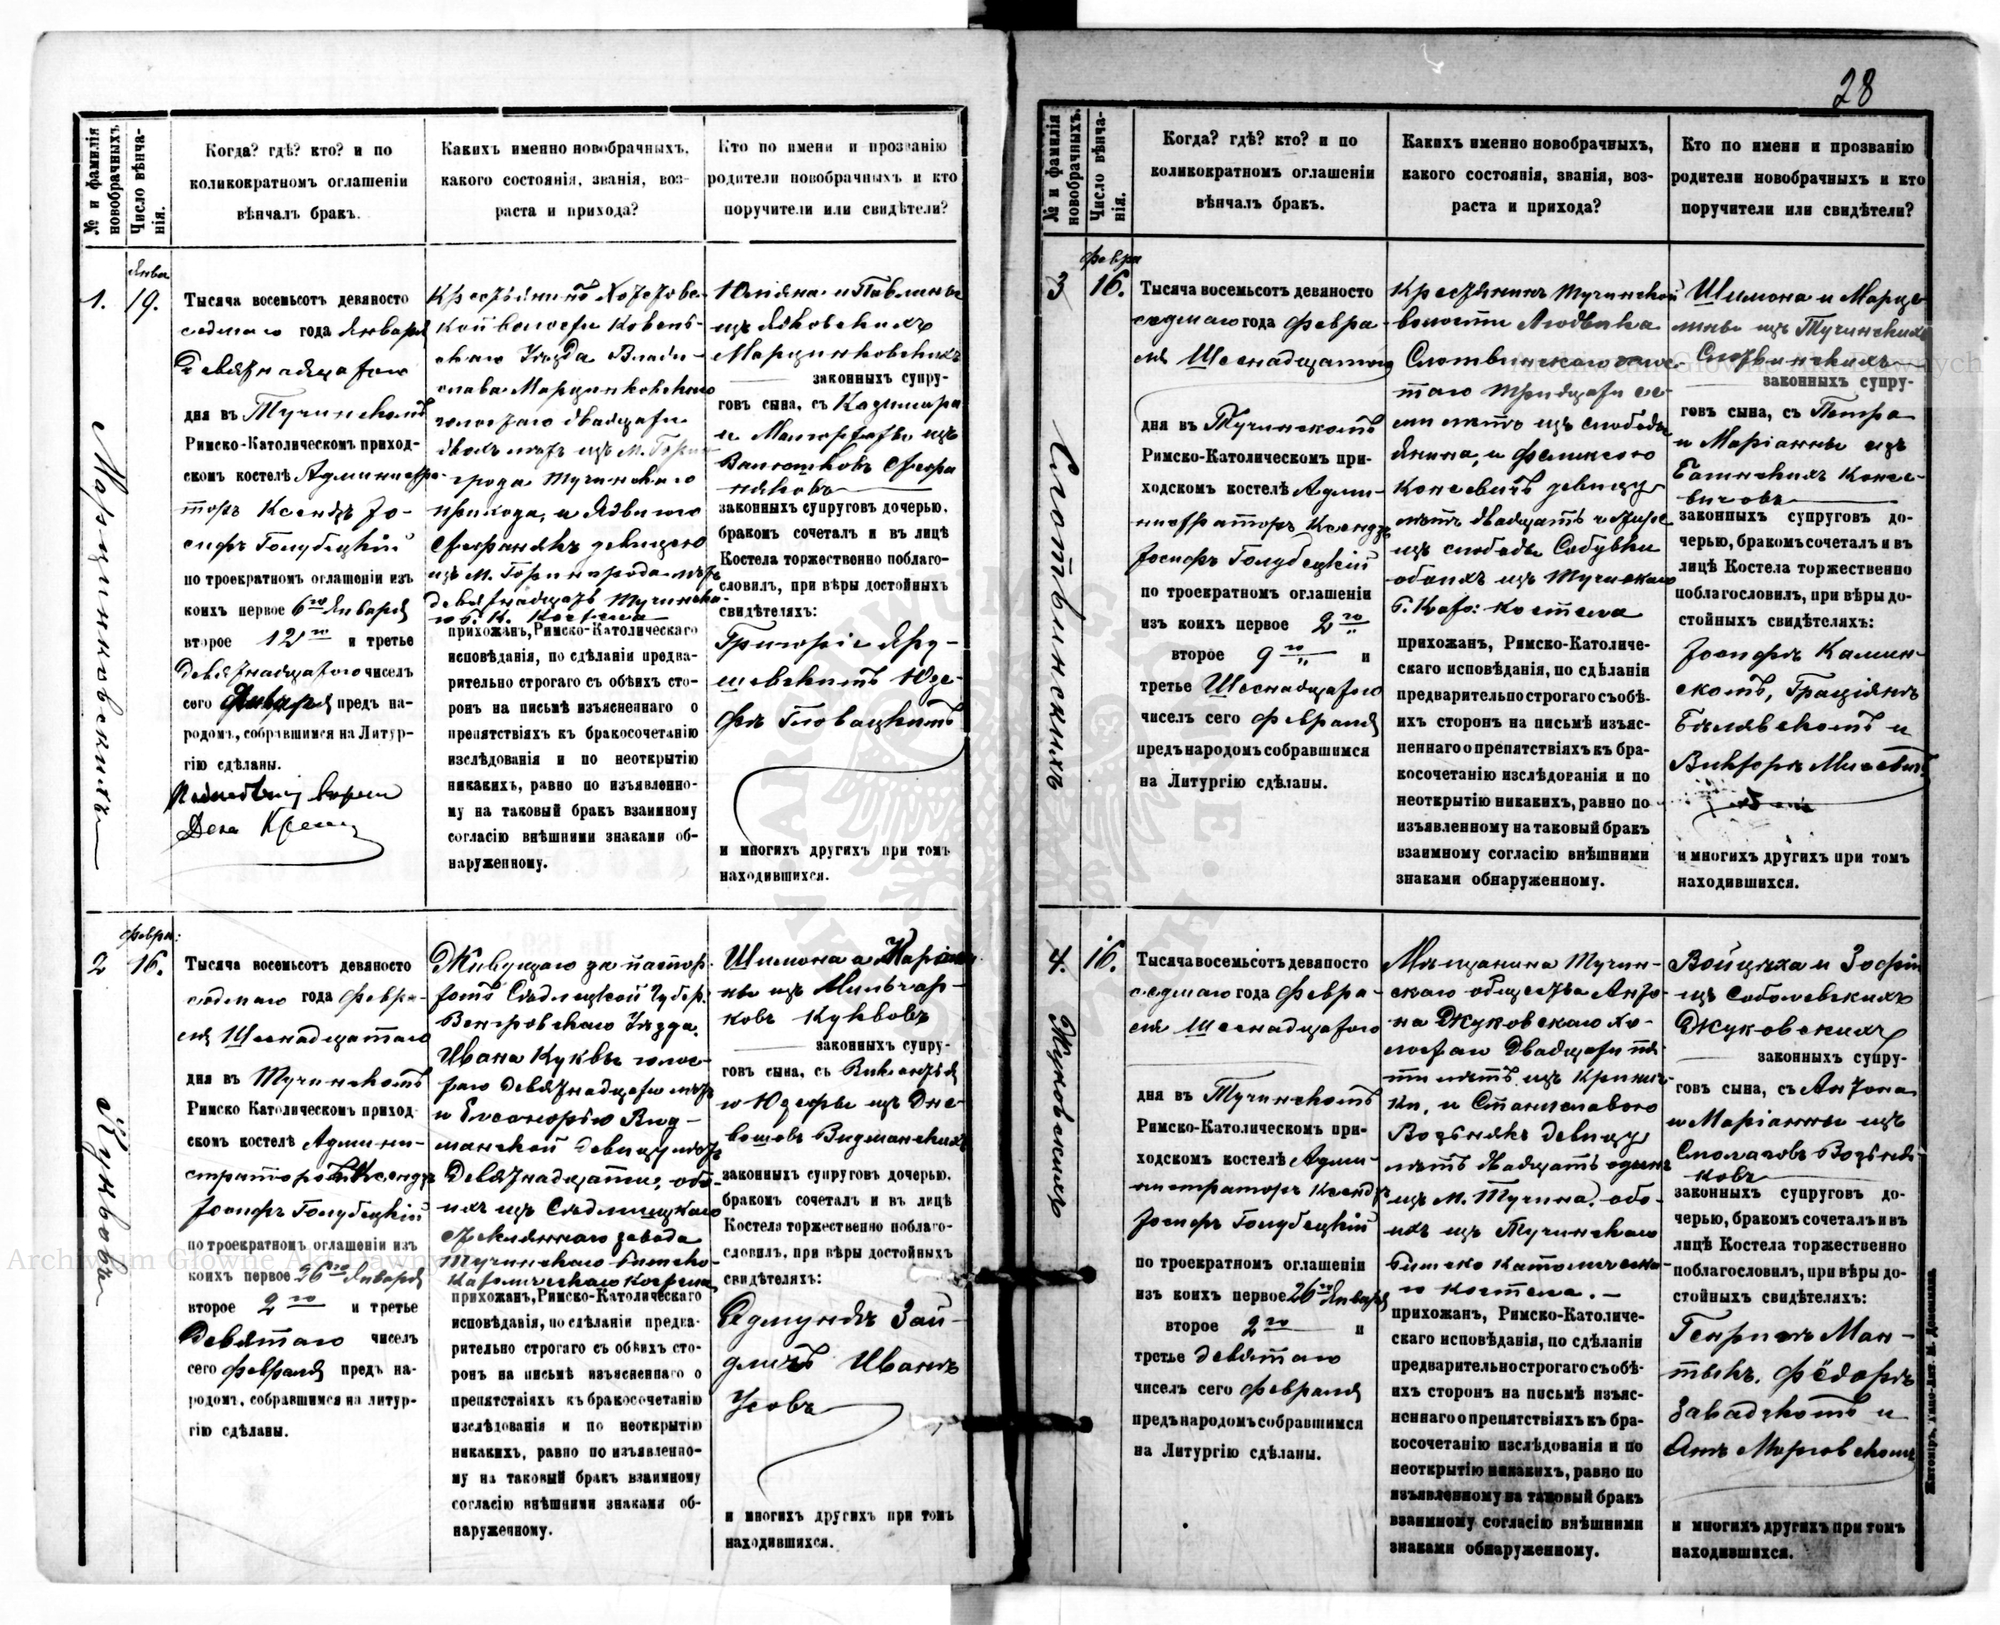 28
№ и фамилія новобрачныхъ.
Число вѣнча-
нія.
Когда? гдѣ? кто? и по
коликократномъ оглашеніи
вѣнчалъ бракъ.
Какихъ именно новобрачныхъ,
какого состоянія, званія, воз-
раста и прихода?
Кто по имени и прозванію
родители новобрачныхъ и кто
поручители или свидѣтели?
1.
Янва
19.
Марцинковскихъ
Тысяча восемьсотъ девяносто
седмаго года Января
Девятнадцатаго
дня въ Тучинскомъ
Римско-Католическомъ приход-
скомъ костелѣ Администра-
торъ Ксендзъ Іо-
сифъ Голубецкій
по троекратномъ оглашеніи изъ
коихъ первое 6го Января
второе 12го и третье
Девятнадцатаго чиселъ
сего Января предъ на-
родомъ, собравшимся на Литур-
гію сдѣланы.
Крестьянина
кой волости Ковен-
скаго Уѣзда Влади-
слава Марцинковскаго
холостаго двадцати
двохъ лѣтъ изъ М. Горин-
града Тучинскаго
прихода, и Ядвигою
Стефанякъ девицею
изъ М. Горинграда лѣтъ
девятнадцать Тучинска-
го б. К. Костела
прихожанъ, Римско-Католическаго
исповѣданія, по сдѣланіи предва-
рительно строгаго съ обѣихъ сто-
ронъ на письмѣ изъясненнаго о
препятствіяхъ къ бракосочетанію
изслѣдованія и по неоткрытію
никакихъ, равно по изъявленно-
му на таковый бракъ взаимному
согласію внѣшними знаками об-
наруженному.
Юліяна и Павлины
изъ Яковскихъ
Марцинковскихъ
законныхъ супру-
говъ сына, съ Казимира
и Малгоржаты изъ
Валюшковъ Стефа
няковъ
законныхъ супруговъ дочерью,
бракомъ сочеталъ и въ лицѣ
Костела торжественно поблаго-
словилъ, при вѣры достойныхъ
свидѣтеляхъ:
Григоріе Яру-
шевскимъ Юзе-
фъ Гловацкимъ
и многихъ другихъ при томъ
находившихся.
2
Февра:
16.
Куквовъ
Тысяча восемьсотъ девяносто
седмаго года Февра-
ля Шеснадцатаго
дня въ Тучинскомъ
Римско Католическомъ приход-
скомъ костелѣ Админи-
страторомъ Ксендзъ
Іосифъ Голубецкій
по троекратномъ оглашеніи изъ
коихъ первое 26го Января
второе 2го и третье
Девятаго чиселъ
сего Февраля предъ на-
родомъ, собравшимся на литур-
гію сдѣланы.
Живущаго за паспор-
томъ Сѣдлецкой Губер:
Венгровскаго Уѣзда
Ивана Куквы холос-
таго Девятнадцати лѣтъ
и Елеонорію Вид-
манской Девицу лѣтъ
Девятнадцати, обо-
ихъ изъ Сѣдлищкаго
Стекляннаго завода
Тучинскаго Римско-
Католическаго Костела
прихожанъ, Римско-Католическаго
исповѣданія, по сдѣланіи предва-
рительно строгаго съ обѣихъ сто-
ронъ на письмѣ изъясненнаго о
препятствіяхъ къ бракосочетанію
изслѣдованія и по неоткрытію
никакихъ, равно по изъявленно-
му на таковый бракъ взаимному
согласію внѣшними знаками об-
наруженному.
Шимона и Маріан-
ны изъ Мильчар-
ковъ Куквовъ
законныхъ супру-
говъ сына, съ Викентія
и Юзефы изъ Дне-
вошовъ Видманскихъ
законныхъ супруговъ дочерью,
бракомъ сочеталъ и въ лицѣ
Костела торжественно поблаго-
словилъ, при вѣры достойныхъ
свидѣтеляхъ:
Едмундъ Зай-
длицъ Иванъ
Усовъ
и многихъ другихъ при томъ
находившихся.
№ и фамилія новобрачныхъ.
Число вѣнча-
нія.
Когда? гдѣ? кто? и по
коликократномъ оглашеніи
вѣнчалъ бракъ.
Какихъ именно новобрачныхъ,
какого состоянія, званія, воз-
раста и прихода?
Кто по имени и прозванію
родители новобрачныхъ и кто
поручители или свидѣтели?
3
Февра
16.
Слотвинскихъ
Тысяча восемьсотъ девяносто
седмаго года Февра-
ля Шеснадцатаго
дня въ Тучинскомъ
Римско-Католическомъ при-
ходскомъ костелѣ Адми-
нистраторъ Ксендзъ
Іосифъ Голубецкій
по троекратномъ оглашеніи
изъ коихъ первое 2го
второе 9го и
третье Шеснадцатаго
чиселъ сего Февраля
предъ народомъ собравшимся
на Литургію сдѣланы.
Крестьянинъ Тучинской
волости Людвика
Слотвинскаго холос-
таго тридцати се-
ми лѣтъ изъ слободы
Янина, и Феликсою
Концевичъ девицу
лѣтъ двадцать четыре
изъ слободы Собувки
обоихъ изъ Тучинскаго
б. Като: костела
прихожанъ, Римско-Католиче-
скаго исповѣданія, по сдѣланіи
предварительно строгаго съ обѣ-
ихъ сторонъ на письмѣ изъяс-
неннаго о препятствіяхъ къ бра-
косочетанію изслѣдованія и по
неоткрытію никакихъ, равно по
изъявленному на таковый бракъ
взаимному согласію внѣшними
знаками обнаруженному.
Шимона и Марце-
лины изъ Тучинскихъ
Слотвинскихъ
законныхъ супру-
говъ сына, съ Петра
и Маріанны изъ
Багинскихъ Конце-
вичовъ
законныхъ супруговъ до-
черью, бракомъ сочеталъ и въ
лицѣ Костела торжественно
поблагословилъ, при вѣры до-
стойныхъ свидѣтеляхъ:
Іосифъ Камин-
скомъ, Граціянъ
Бѣлявскомъ и
Викторъ
и многихъ другихъ при томъ
находившихся.
4.
16.
Жуковскихъ
Тысяча восемьсотъ девяносто
седмаго года Февра-
ля Шеснадцатаго
дня въ Тучинскомъ
Римско-Католическомъ при-
ходскомъ костелѣ Адми-
нистраторъ Ксендзъ
Іосифъ Голубецкій
по троекратномъ оглашеніи
изъ коихъ первое 26го Января
второе 2го и
третье Девятаго
чиселъ сего Февраля
предъ народомъ собравшимся
на Литургію сдѣланы.
Мѣщанина Тучин-
скаго общества Анто-
на Джуковскаго хо-
лостаго Двадцати пя-
ти лѣтъ изъ Кринич-
ки, и Станиславою
Возьнякъ девицу
лѣтъ двадцать одинъ
изъ М. Тучина, обо-
ихъ изъ Тучинскаго
Римско Католическа-
го костела. -
прихожанъ, Римско-Католиче-
скаго исповѣданія, по сдѣланіи
предварительно строгаго съ обѣ-
ихъ сторонъ на письмѣ изъяс-
неннаго о препятствіяхъ къ бра-
косочетанію изслѣдованія и по
неоткрытію никакихъ, равно по
изъявленному на таковый бракъ
взаимному согласію внѣшними
знаками обнаруженному.
Войцѣха и Зофіи
изъ Соболевскихъ
Джуковскихъ
законныхъ супру-
говъ сына, съ Антона
и Маріанны изъ
Смолаговъ Возьня
ковъ
законныхъ супруговъ до-
черью, бракомъ сочеталъ и въ
лицѣ Костела торжественно
поблагословилъ, при вѣры до-
стойныхъ свидѣтеляхъ:
Генрихъ Ман-
тыкъ, Фёдоръ
Завадскомъ и
Янъ Марговскомъ
и многихъ другихъ при томъ
находившихся.
Житоміръ, Типо-Лит. М. Дененмана.
Archiwum Główne Akt Dawnych
Archiwum Główne Akt Dawnych